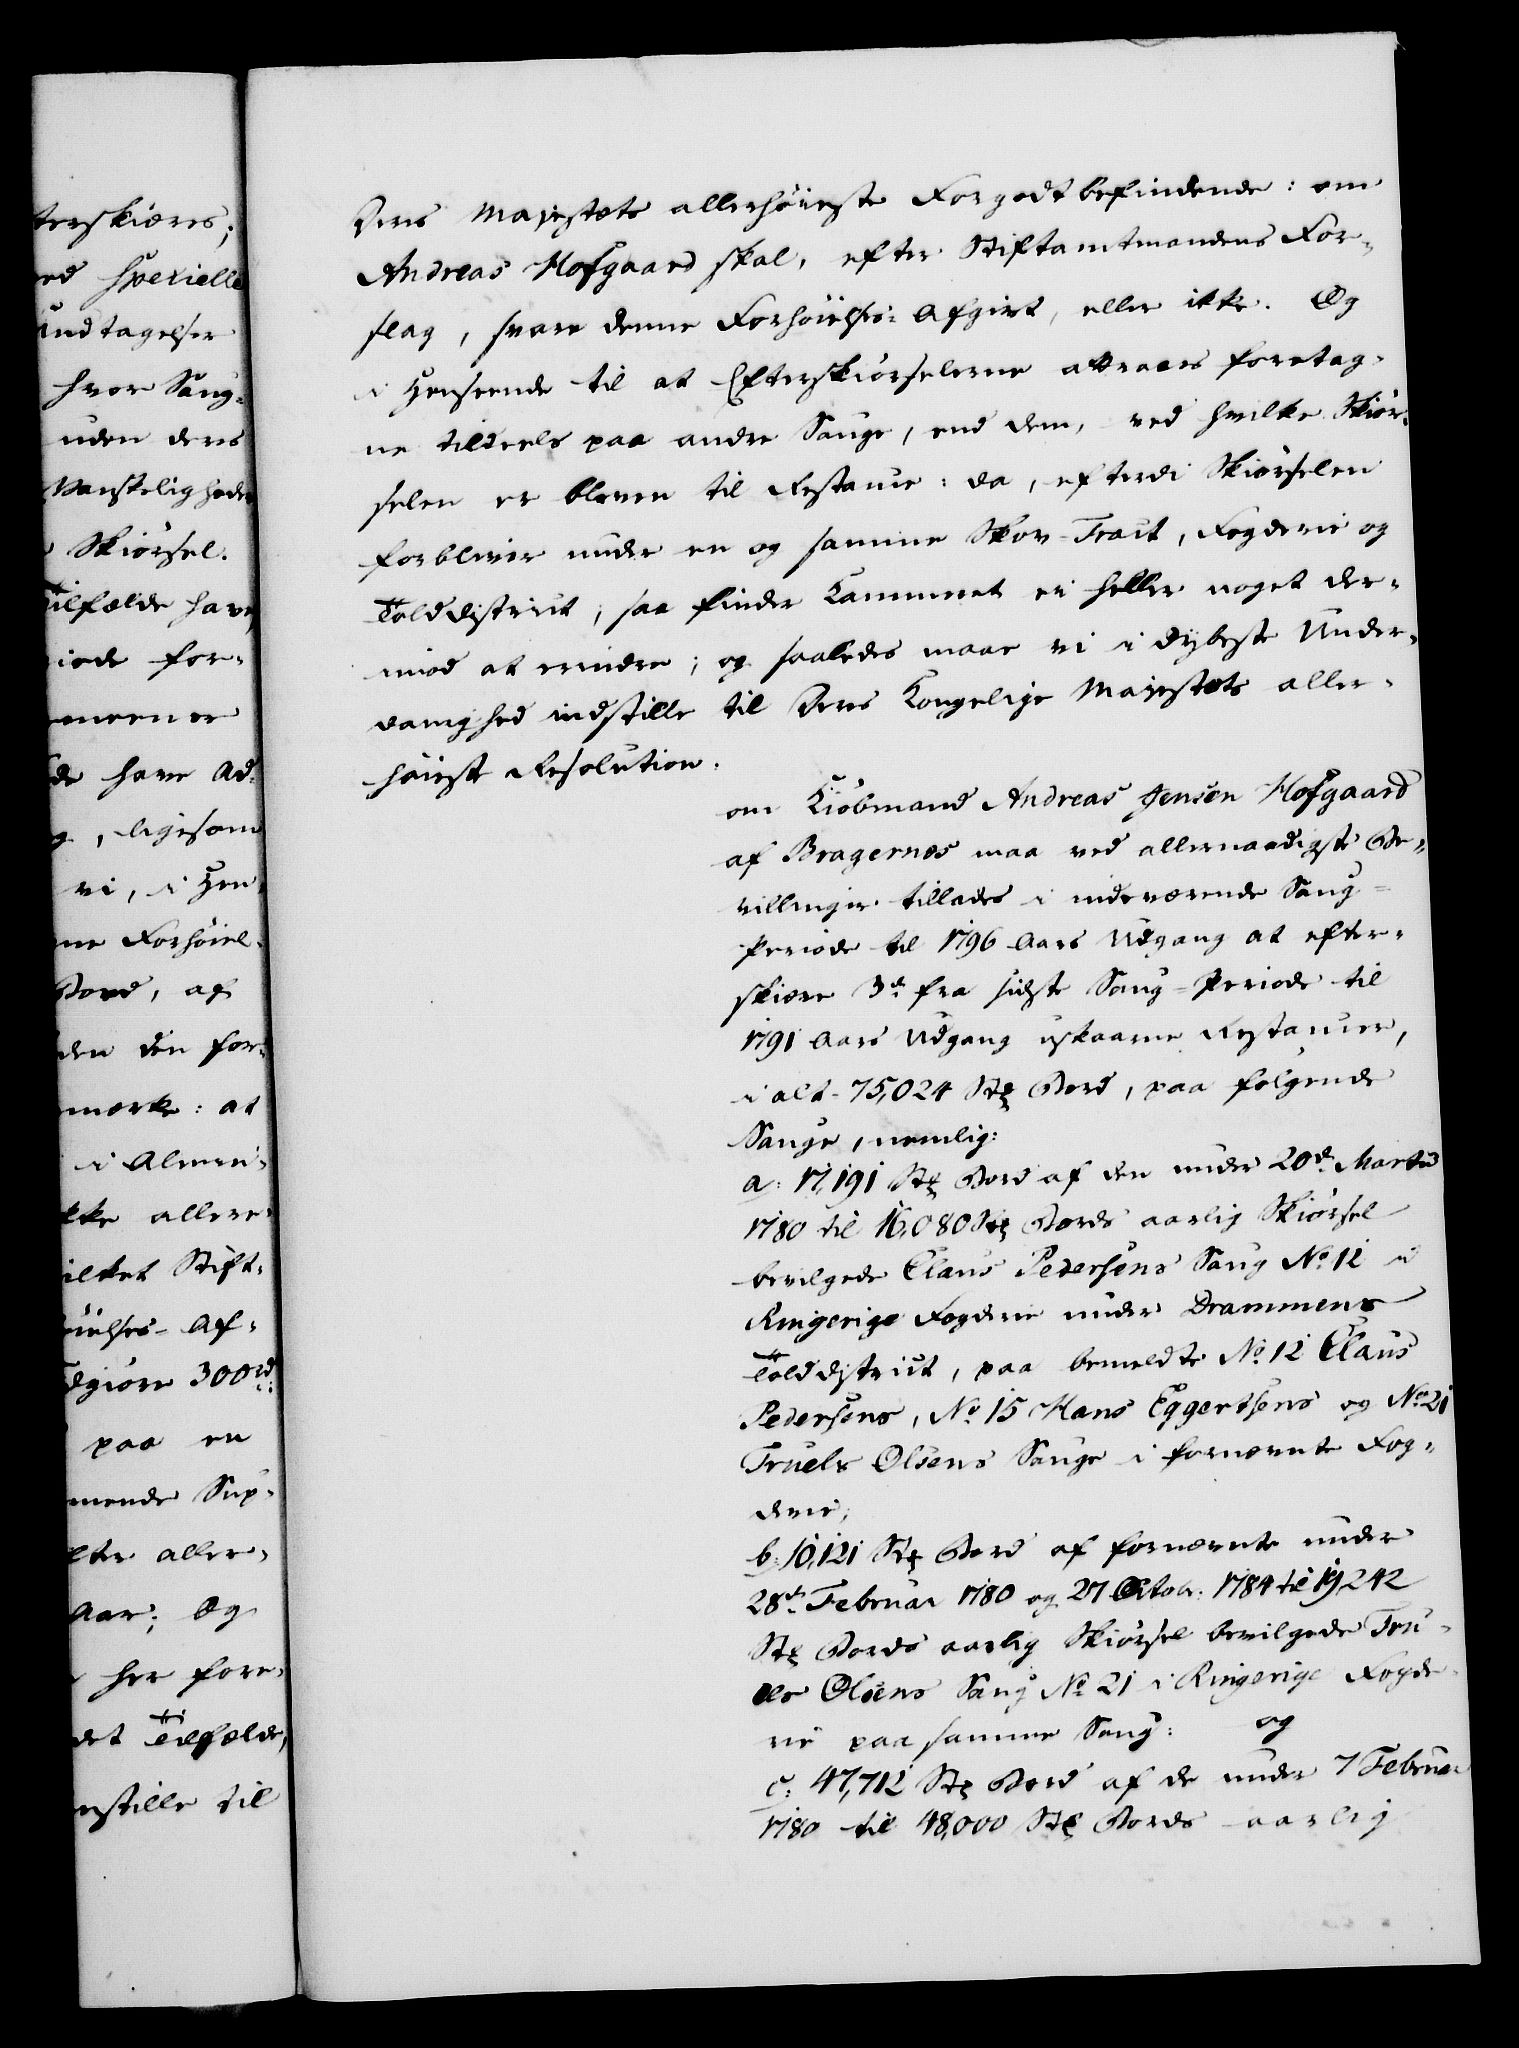 terskiæres;
ed specielle
Undtagelser
hvor Saug-
uden deres
Vanskeligheder
Skiørsel.
Tilfælde have
iode for-
meener
de have Ad-
g, ligesom
vi, i Hen-
ne Forhøiel-
Bord, af
den den for-
mærke: at
i Almin-
kke allere-
ilket Stift-
øielses-Af-
dgiøre 300rd:
paa en
mende Sup-
lter aller-
Aar; og
her fore-
det Tilfælde,
nstille til
Deres Majestæts allerhöieste Forgodtbefindende: om
Andreas Hofgaard skal, efter Stiftamtmandens For-
slag, svare denne Forhöielses-Afgivt, eller ikke. Og
i Henseende til at Efterskiörselerne attraaes foretag-
ne tildeels paa andre Sauge, end dem, ved hvilke Skiör-
selen er bleven til Restance: da, efterdi Skiörselen
forbliver under en og samme Skov-Tract, Fogderie og
Tolddistrict, saa finder Kammeret ei heller noget der-
imod at erindre; og saaledes maae vi i dybeste Under-
danighed indstille til Deres Kongelige Majestæts aller-
höieste Resolution.
om Kiöbmand Andreas Jensen Hofgaard
af Bragernes maa ved allernaadigste Be-
villinger tillades i indeværende Saug-
Periode til 1796 Aars Udgang at efter-
skiære 3de fra sidste Saug-Periode til
1791 Aars Udgang uskaarne Restancer,
i alt 75,024 Stk Bord, paa følgende
Sauge, nemlig:
a: 17,191 Stk Bord af den under 20de Martii
1780 til 16,080 Stk Bords aarlig Skiörsel
bevilgede Claus Pedersens Saug No 12 i
Ringerige Fogderie under Drammens
Tolddistrict, paa bemeldte No 12 Claus
Pedersens, No 15 Hans Eggertsens og No 21
Truels Olsens Sauge i fornævnte Fog-
derie;
b: 10,121 Stk Bord af fornævnte under
28de Februar 1780 og 27 Octobr: 1784 til 19,242
Stk Bords aarlig Skiörsel bevilgede Tru-
els Olsens Saug No 21 i Ringerige Fogde-
rie paa samme Saug: og
c: 47,712 Stk Bord af de under 7 Februar
1780 til 48,000 Stk Bords aarlig